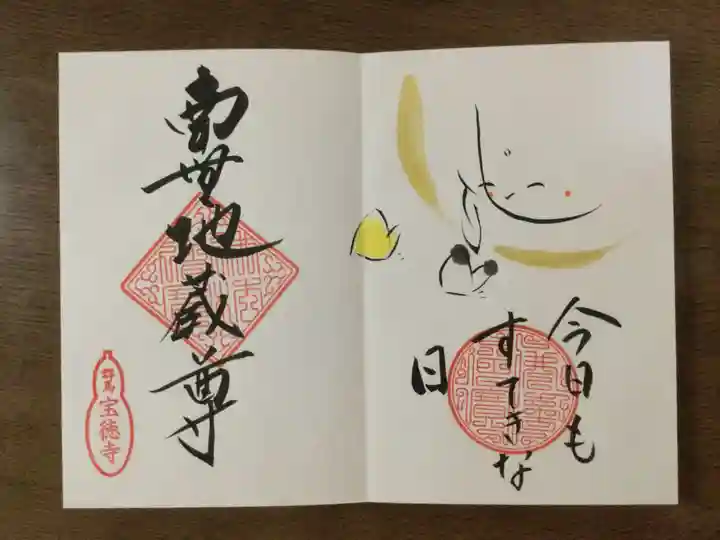 今日も
すてきな
日
南無地蔵尊
群馬
宝徳寺